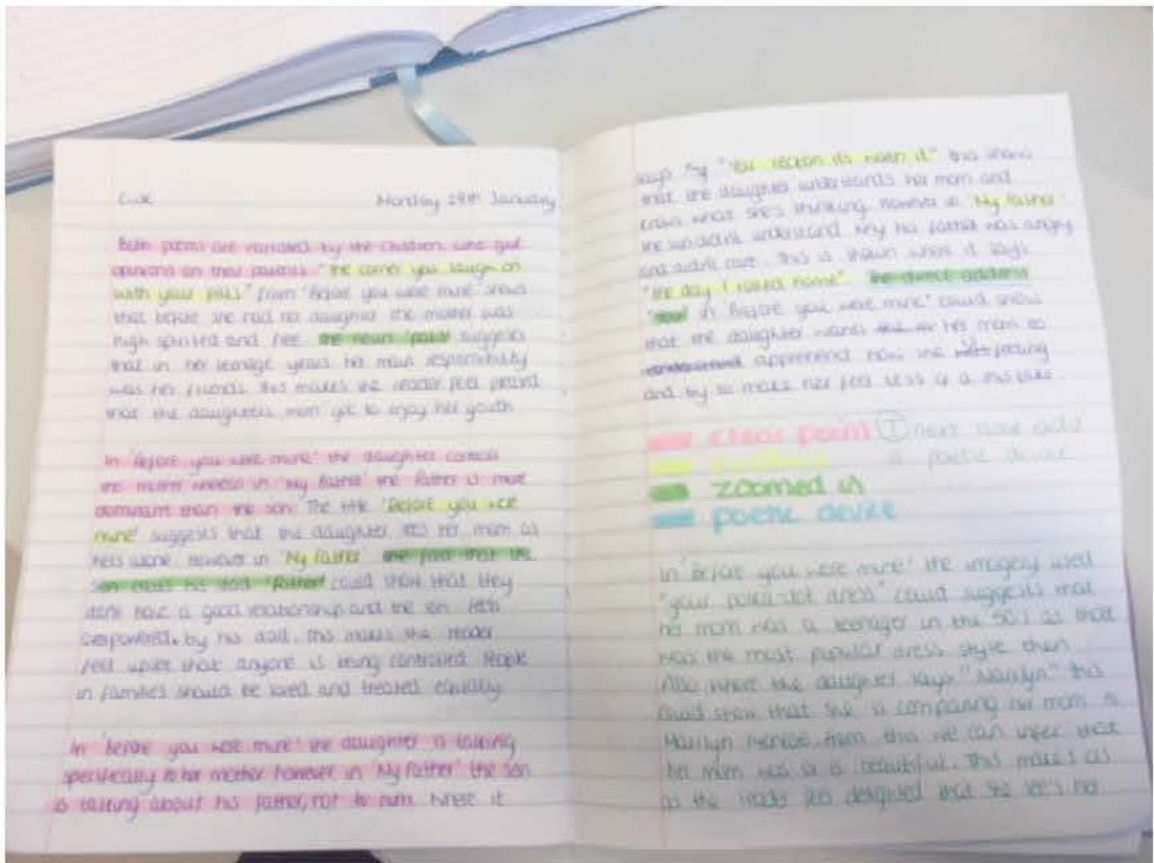 CWK Monday 29th January
Both poems are narrated by the children who give
opinions on their parents. "the corner you laugh on
with your pals" from 'Before you were mine' shows
that before she had her daughter the mother was
high spirited and free. the noun 'pals' suggests
that in her teenage years her main responsibility
was her friends. this makes the reader feel pleased
that the daughters mom got to enjoy her youth
In 'Before you were mine' the daughter controls
the mother whereas in 'My father' the father is more
dominant than the son. The title 'Before you were
mine' suggests that the daughter sees her mom as
hers alone. However in 'My father' the fact that the
son calls his dad 'father' could show that they
dont have a good relationship and the son feels
by his dad. this makes the reader
feel upset that anyone is being controlled. People
in families should be loved and treated equally
In 'Before you were mine' the daughter is talking
specifically to her mother however in 'My father' the son
is talking about his father, not to him. Where it
says "You reckon its worth it." this shows
that the daughter understands her mom and
knows what she's thinking. However in 'My father'
the son didn't understand why his father was angry
and didn't care. this is shown where it says
"the day I sailed home". the direct address
"your" in 'Before you were mine' could show
that the daughter wants her mom to
understand apprehend how she feeling
and by so make her feel less of a mistake
clear point (T) next time add
evidence a poetic device
zoomed in
poetic device
In 'Before you were mine' the imagery used
"your polka-dot dress" could suggests that
her mom was a teenager in the 50's as that
was the most popular dress style then.
Also where the daughter says "Marilyn" this
could show that she is comparing her mom to
Marilyn Monroe. from this we can infer that
her mom was or is beautiful. This makes us
as the reader feel delighted that she let's her